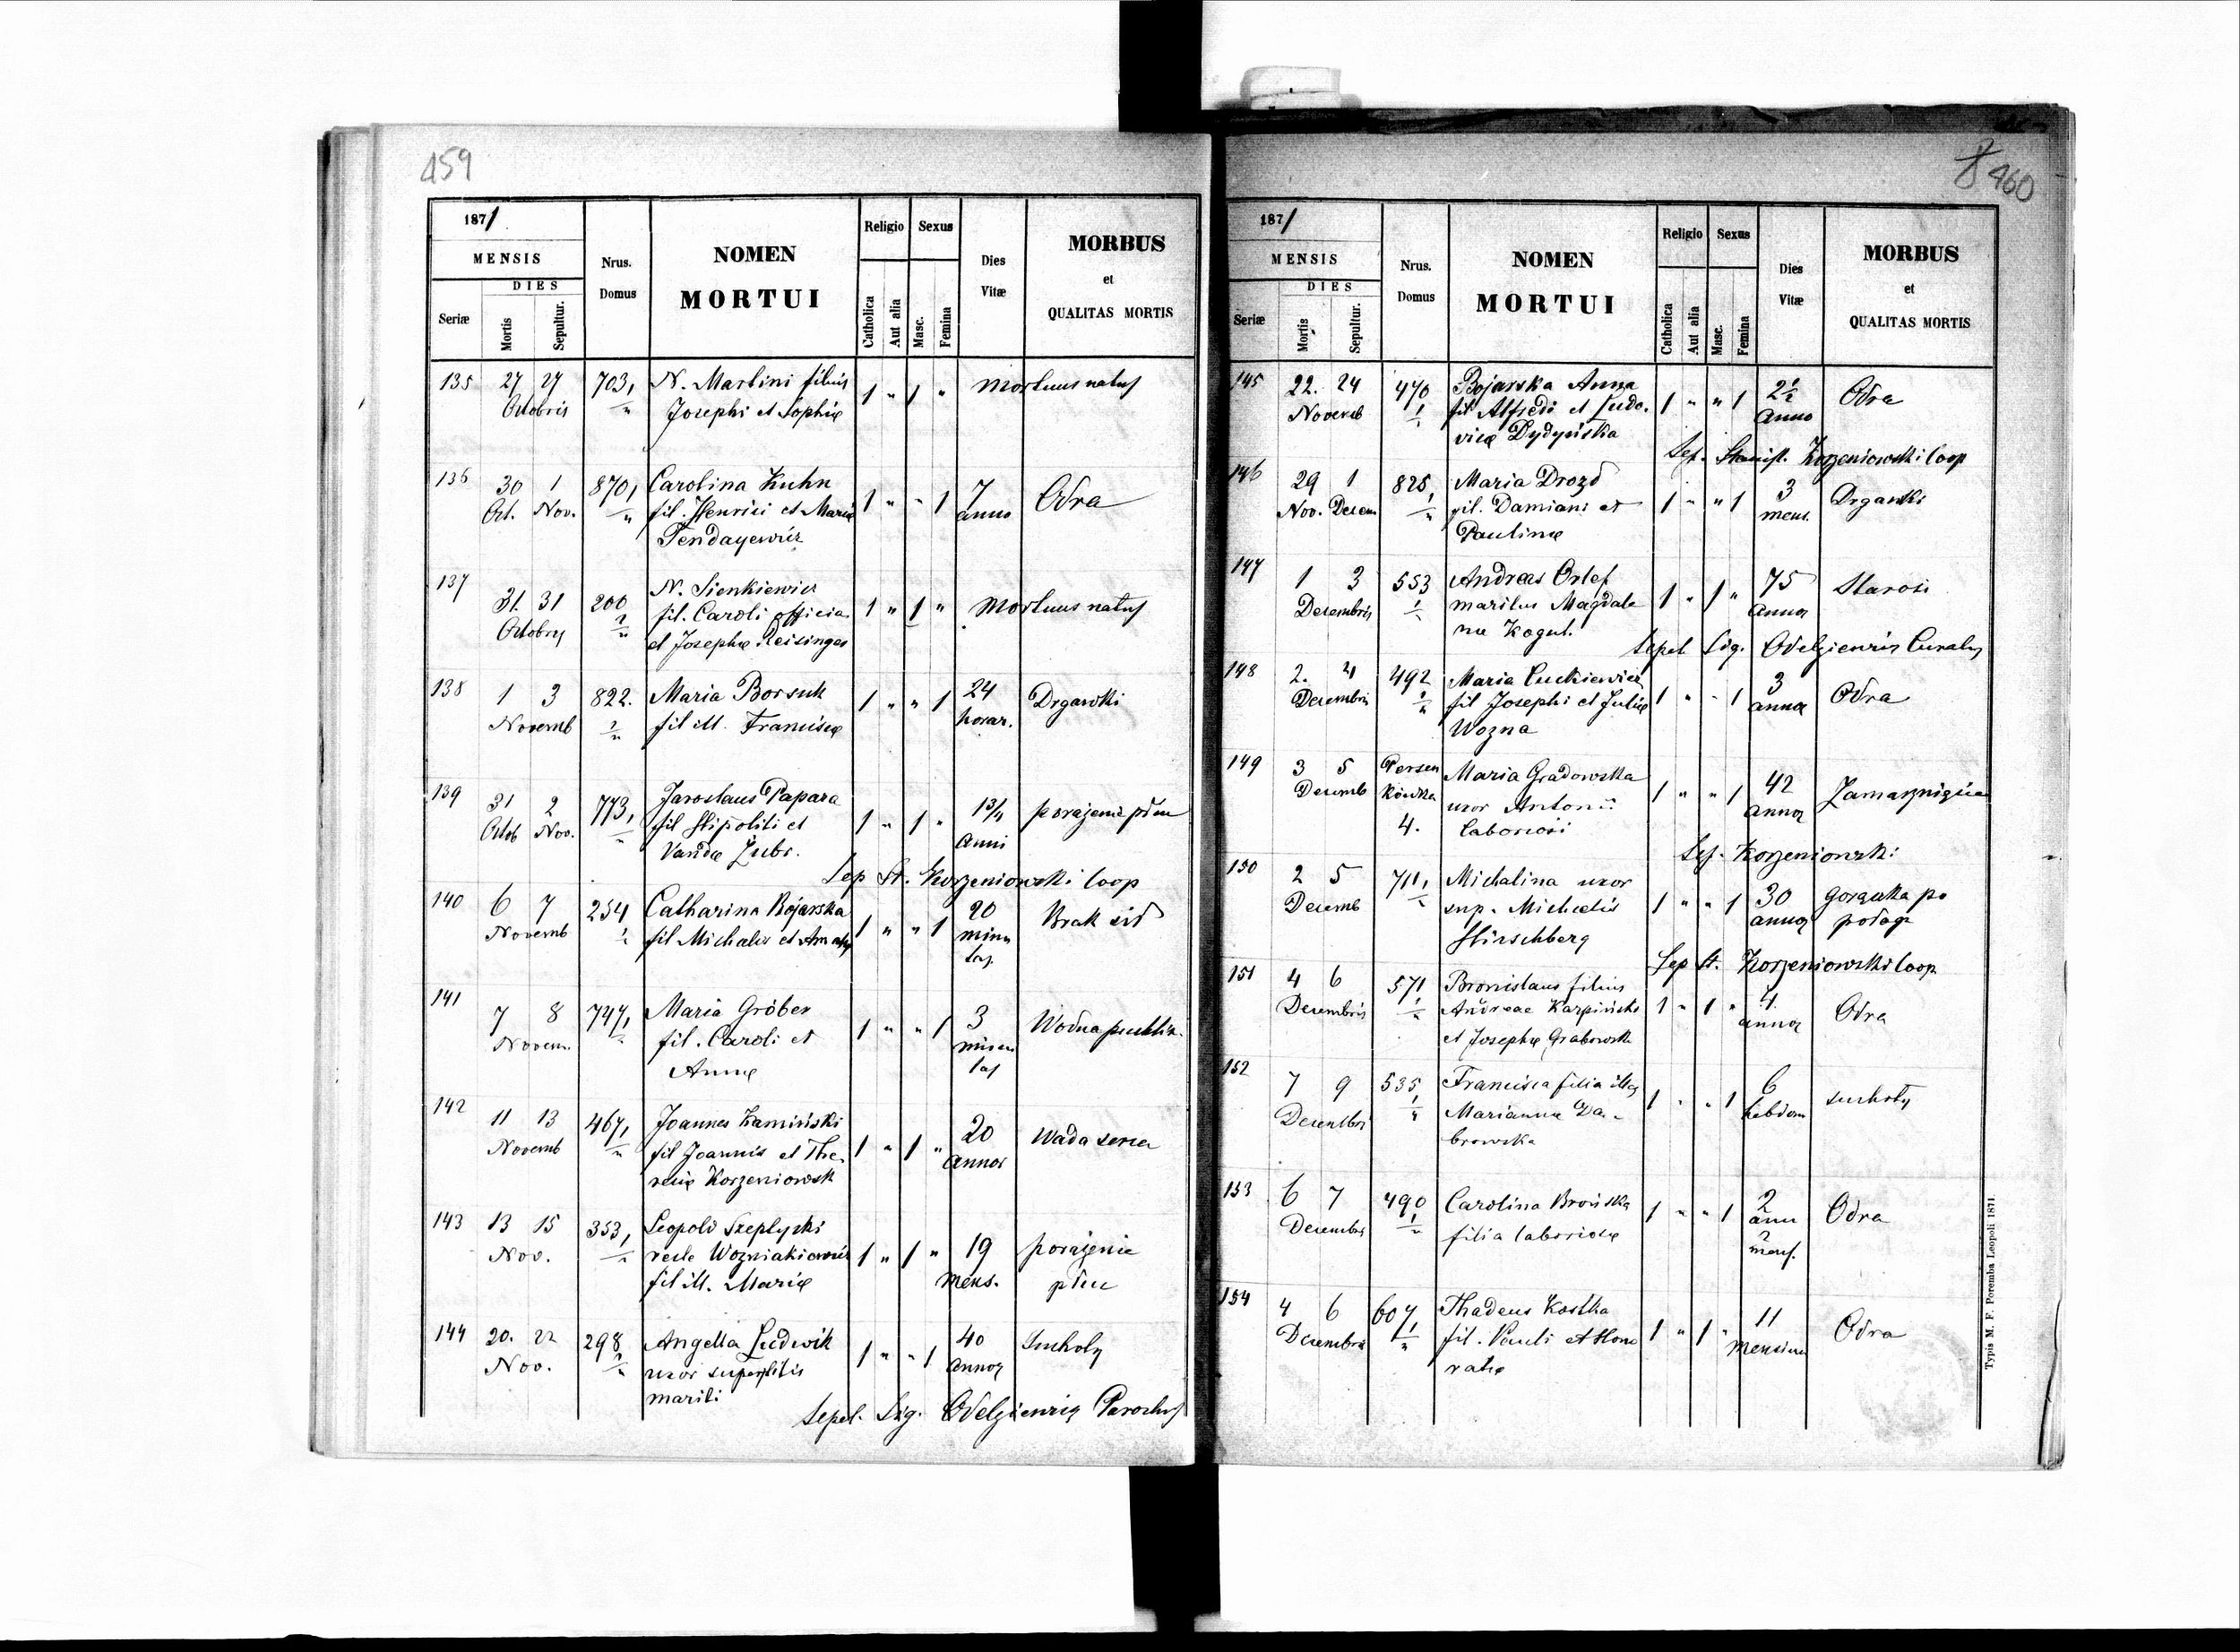 459
1871
MENSIS
DIES
Seriæ
Mortis
Sepultur.
Nrus.
Domus
NOMEN
MORTUI
Religio
Sexus
Catholica
Aut alia
Masc.
Femina
Dies
Vitæ
MORBUS
et
QUALITAS MORTIS
135 27 27 703, N. Martini filius 1 " 1 " Mortuus natus
Octobris Josephi et Sophiæ
136 30 1 870, Carolina Kuhn 1 " " 1 7 Odra
Oct. Nov. fil. Henrici et Mariæ anno
Tendayewicz
137 31. 31 200 N. Sienkiewicz 1 " 1 " Mortuus natus
Octobris fil. Caroli officia
et Josephæ Reisinger
138 1 3 822. Maria Borsuk 1 " " 1 24 Drgawki
Novemb fil ill. Franciscæ horar.
139 31 2 773, Jaroslaus Papara 1 " 1 " 1 3/4 porażenie płuc
Octob Nov. fil Hipoliti et anni
Vandæ Zubr.
Sep St. Korzeniowski Coop
140 6 7 254 Catharina Bojarska 1 " " 1 20 Brak sił
Novemb fil Michaelis et minu
tas.
141 7 8 747, Maria Gröber 1 " " 1 3 Wodna puchlin.
Novem. fil. Caroli et
Annæ
142 11 13 467, Joannes Kamiński 1 " 1 " 20 Wada serca
Novemb fil Joannis et The annor
resiæ Korzeniowsk
143 13 15 353, Leopold Szeptycki 1 " 1 " 19 porażenie
Nov. recte Wozniakiewicz mens. płuc
fil ill. Mariæ
144 20. 22 298 Angella Ludwik 1 " " 1 40 Suchoty
Nov. uxor superstitis annor
mariti
Sepel. Sig. Odelgiewicz Parochus
460
1871
MENSIS
DIES
Seriæ
Mortis
Sepultur.
Nrus.
Domus
NOMEN
MORTUI
Religio
Sexus
Catholica
Aut alia
Masc.
Femina
Dies
Vitæ
MORBUS
et
QUALITAS MORTIS
145 22. 24 470 Bojarska Anna 1 " " 1 2 1/2 Odra
Novemb fil. Alfredi et Ludo. anno
vicæ Dydyńska
Sep. Stanisl. Korzeniowski Coop
146 29 1 825, Maria Drozd 1 " " 1 3 Drgawki
Nov. Decem fil. Damiani et mens.
Paulinæ
147 1 3 553 Andreas Orlef 1 " 1 " 75 Starość
Decembris maritus Magdale annor
næ Kogut.
Sepel Sig. Odelgiewicz Curatus
148 2. 4 492 Maria Luckiewicz 1 " " 1 3 Odra
Decembris fil Josephi et Juliæ annor
Wozna
149 3 5 Persen Maria Gradowska 1 " " 1 42 Zamarznięcie
Decemb kówka uxor Antonii annor
4. laboriosi
Sep. Korzeniowski
150 2 5 711, Michalina uxor 1 " " 1 30 Gorączka po
Decemb sup. Michaelis annor połogo
Hirschberg
Sep St. Korzeniowski Coop
151 4 6 571 Bronislaus filius 1 " 1 " 4 Odra
Decembris Andreae Karpiński annor
et Josephæ Grabowsk
152 7 9 535, Francisca filia ill. 1 " " 1 6 suchoty
Decembri Mariannæ Da - hebdom
browska
153 6 7 490 Carolina Brońska 1 " " 1 2 Odra
Decembri filia laboriosæ ann
2
mens.
154 4 6 607, Thadeus Kostka 1 " 1 " 11 Odra
Decembris fil. Pauli et Hono mensium
ratæ
Typis M. F. Poremba Leopoli 1871.